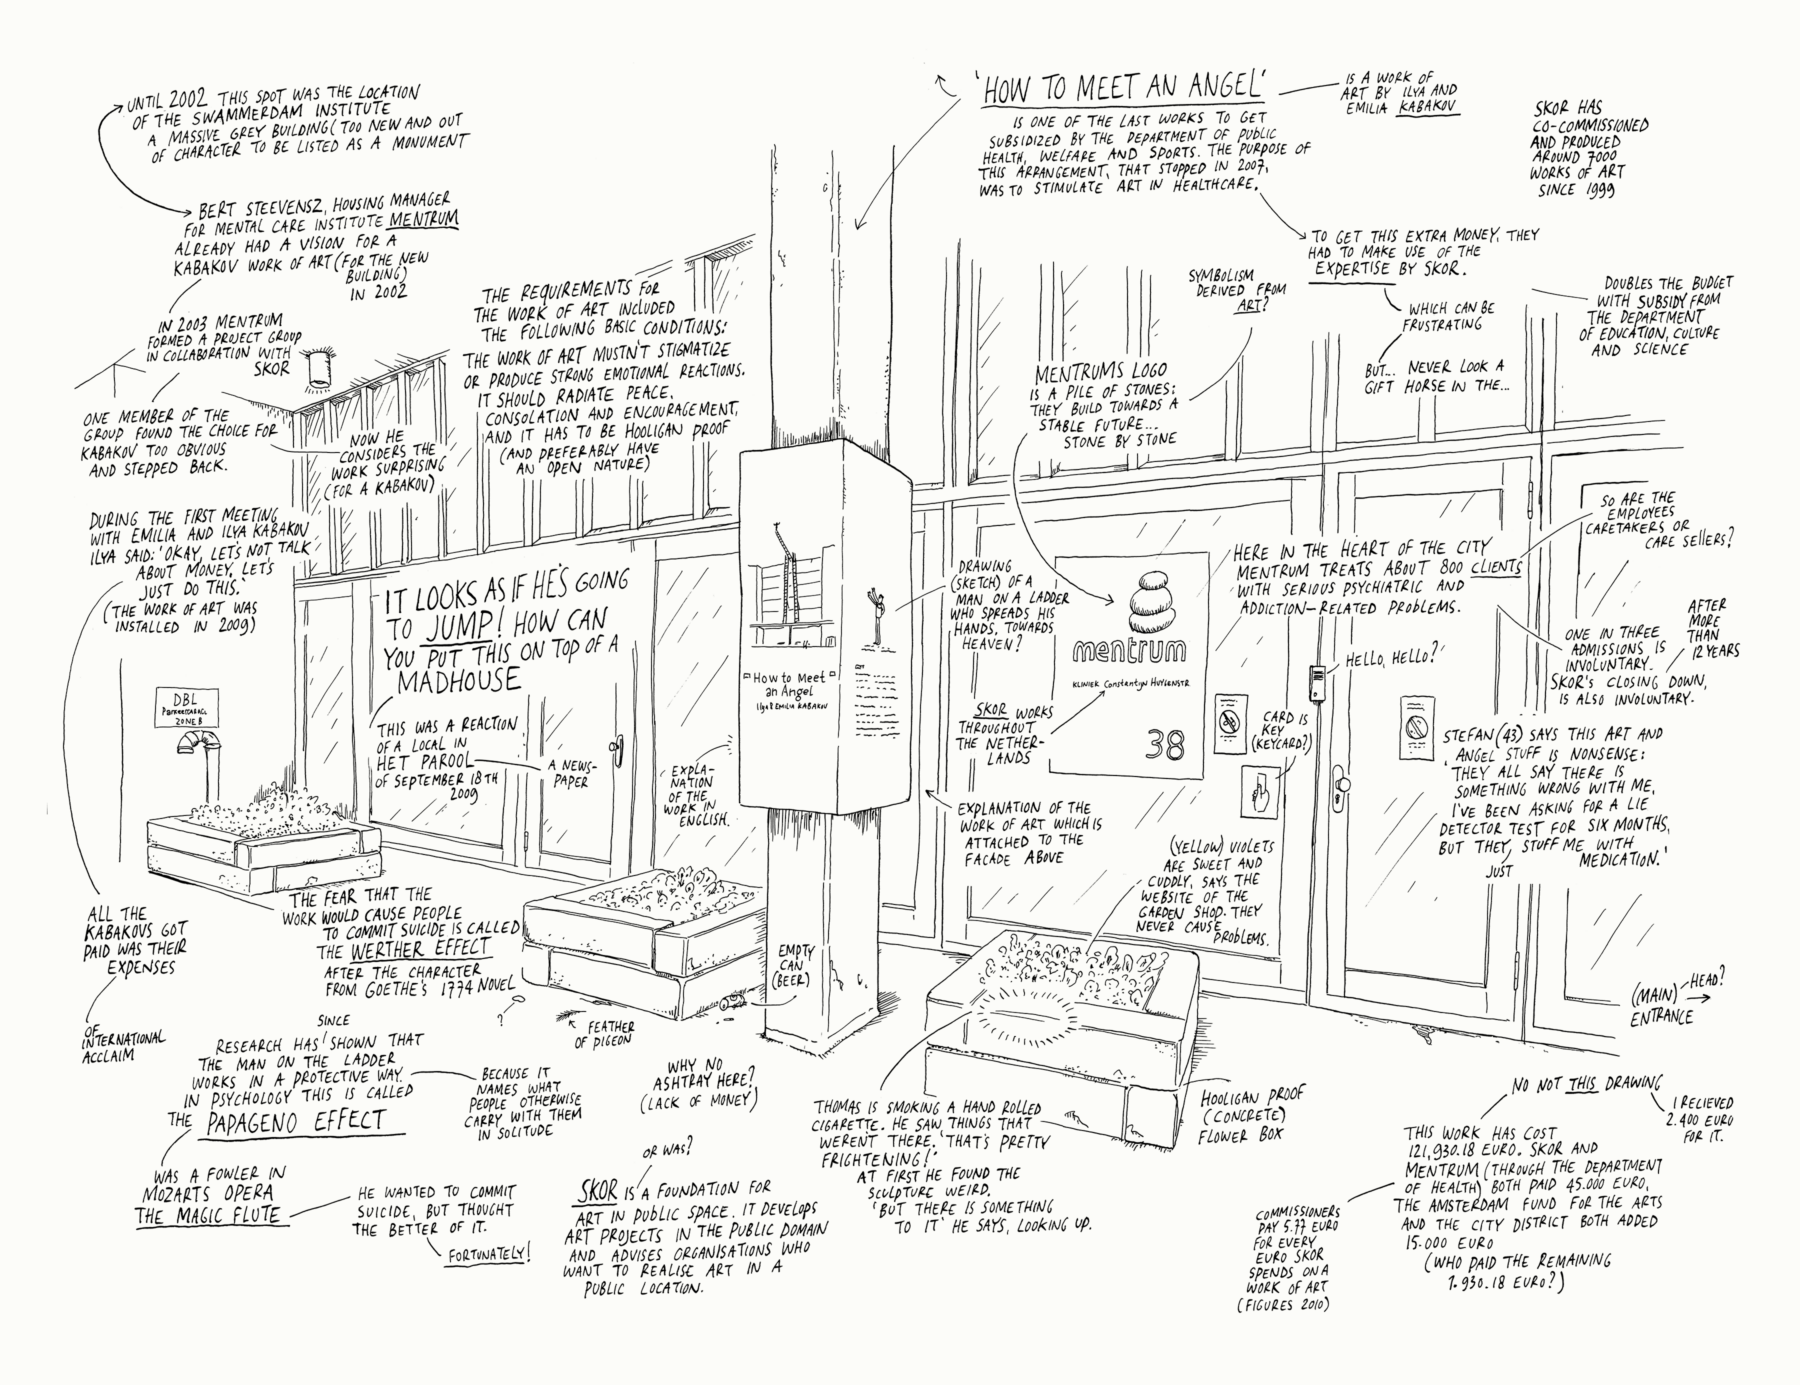 UNTIL 2002 THIS SPOT WAS THE LOCATION
OF THE SWAMMERDAM INSTITUTE
A MASSIVE GREY BUILDING (TOO NEW AND OUT
OF CHARACTER TO BE LISTED AS A MONUMENT
BERT STEEVENSZ, HOUSING MANAGER
FOR MENTAL CARE INSTITUTE MENTRUM
ALREADY HAD A VISION FOR A
KABAKOV WORK OF ART (FOR THE NEW
BUILDING)
IN 2002
IN 2003 MENTRUM
FORMED A PROJECT GROUP
IN COLLABORATION WITH
SKOR
ONE MEMBER OF THE
GROUP FOUND THE CHOICE FOR
KABAKOV TOO OBVIOUS
AND STEPPED BACK.
NOW HE
CONSIDERS THE
WORK SURPRISING
(FOR A KABAKOV)
DURING THE FIRST MEETING
WITH EMILIA AND ILYA KABAKOV
ILYA SAID: 'OKAY, LET'S NOT TALK
ABOUT MONEY, LET'S
JUST DO THIS.'
(THE WORK OF ART WAS
INSTALLED IN 2009)
ALL THE
KABAKOVS GOT
PAID WAS THEIR
EXPENSES
OF
INTERNATIONAL
ACCLAIM
THE REQUIREMENTS FOR
THE WORK OF ART INCLUDED
THE FOLLOWING BASIC CONDITIONS:
THE WORK OF ART MUSTN'T STIGMATIZE
OR PRODUCE STRONG EMOTIONAL REACTIONS.
IT SHOULD RADIATE PEACE,
CONSOLATION AND ENCOURAGEMENT,
AND IT HAS TO BE HOOLIGAN PROOF
(AND PREFERABLY HAVE
AN OPEN NATURE)
IT LOOKS AS IF HE'S GOING
TO JUMP! HOW CAN
YOU PUT THIS ON TOP OF A
MADHOUSE
THIS WAS A REACTION
OF A LOCAL IN
HET PAROOL
OF SEPTEMBER 18TH
2009
A NEWS-
PAPER
DBL
ZONE B
EXPLA-
NATION
OF THE
WORK IN
ENGLISH.
How to Meet
an Angel
Ilya & EMILIA KABAKOV
THE FEAR THAT THE
WORK WOULD CAUSE PEOPLE
TO COMMIT SUICIDE IS CALLED
THE WERTHER EFFECT
AFTER THE CHARACTER
FROM GOETHE'S 1774 NOVEL
?
FEATHER
OF PIGEON
EMPTY
CAN
(BEER)
SINCE
RESEARCH HAS SHOWN THAT
THE MAN ON THE LADDER
WORKS IN A PROTECTIVE WAY.
IN PSYCHOLOGY THIS IS CALLED
THE PAPAGENO EFFECT
BECAUSE IT
NAMES WHAT
PEOPLE OTHERWISE
CARRY WITH THEM
IN SOLITUDE
WAS A FOWLER IN
MOZARTS OPERA
THE MAGIC FLUTE
HE WANTED TO COMMIT
SUICIDE, BUT THOUGHT
THE BETTER OF IT.
FORTUNATELY!
WHY NO
ASHTRAY HERE?
(LACK OF MONEY)
OR WAS?
SKOR IS A FOUNDATION FOR
ART IN PUBLIC SPACE. IT DEVELOPS
ART PROJECTS IN THE PUBLIC DOMAIN
AND ADVISES ORGANISATIONS WHO
WANT TO REALISE ART IN A
PUBLIC LOCATION.
'HOW TO MEET AN ANGEL'
IS ONE OF THE LAST WORKS TO GET
SUBSIDIZED BY THE DEPARTMENT OF PUBLIC
HEALTH, WELFARE AND SPORTS. THE PURPOSE OF
THIS ARRANGEMENT, THAT STOPPED IN 2007,
WAS TO STIMULATE ART IN HEALTHCARE.
IS A WORK OF
ART BY ILYA AND
EMILIA KABAKOV
SKOR HAS
CO-COMMISSIONED
AND PRODUCED
AROUND 7000
WORKS OF ART
SINCE 1999
TO GET THIS EXTRA MONEY, THEY
HAD TO MAKE USE OF THE
EXPERTISE BY SKOR.
WHICH CAN BE
FRUSTRATING
BUT... NEVER LOOK A
GIFT HORSE IN THE...
DOUBLES THE BUDGET
WITH SUBSIDY FROM
THE DEPARTMENT
OF EDUCATION, CULTURE
AND SCIENCE
SYMBOLISM
DERIVED FROM
ART?
MENTRUMS LOGO
IS A PILE OF STONES:
THEY BUILD TOWARDS A
STABLE FUTURE...
STONE BY STONE
DRAWING
(SKETCH) OF A
MAN ON A LADDER
WHO SPREADS HIS
HANDS, TOWARDS
HEAVEN?
mentrum
KLINIEK Constantijn HUYGENSTR
38
SKOR WORKS
THROUGHOUT
THE NETHER-
LANDS
EXPLANATION OF THE
WORK OF ART WHICH IS
ATTACHED TO THE
FACADE ABOVE
HERE IN THE HEART OF THE CITY
MENTRUM TREATS ABOUT 800 CLIENTS
WITH SERIOUS PSYCHIATRIC AND
ADDICTION-RELATED PROBLEMS.
SO ARE THE
EMPLOYEES
CARETAKERS OR
CARE SELLERS?
'HELLO, HELLO?'
CARD IS
KEY
(KEYCARD?)
ONE IN THREE
ADMISSIONS IS
INVOLUNTARY.
SKOR'S CLOSING DOWN,
IS ALSO INVOLUNTARY.
AFTER
MORE
THAN
12 YEARS
STEFAN (43) SAYS THIS ART AND
ANGEL STUFF IS NONSENSE:
'THEY ALL SAY THERE IS
SOMETHING WRONG WITH ME,
I'VE BEEN ASKING FOR A LIE
DETECTOR TEST FOR SIX MONTHS,
BUT THEY STUFF ME WITH
MEDICATION.'
JUST
(YELLOW) VIOLETS
ARE SWEET AND
CUDDLY, SAYS THE
WEBSITE OF THE
GARDEN SHOP. THEY
NEVER CAUSE
PROBLEMS.
(MAIN)
HEAD?
ENTRANCE
THOMAS IS SMOKING A HAND ROLLED
CIGARETTE. HE SAW THINGS THAT
WEREN'T THERE. 'THAT'S PRETTY
FRIGHTENING!'
AT FIRST HE FOUND THE
SCULPTURE WEIRD.
'BUT THERE IS SOMETHING
TO IT' HE SAYS, LOOKING UP.
HOOLIGAN PROOF
(CONCRETE)
FLOWER BOX
NO NOT THIS DRAWING
I RELIEVED
2.400 EURO
FOR IT.
THIS WORK HAS COST
121,930.18 EURO. SKOR AND
MENTRUM (THROUGH THE DEPARTMENT
OF HEALTH) BOTH PAID 45.000 EURO,
THE AMSTERDAM FUND FOR THE ARTS
AND THE CITY DISTRICT BOTH ADDED
15.000 EURO
(WHO PAID THE REMAINING
1.930.18 EURO?)
COMMISSIONERS
PAY 5.77 EURO
FOR EVERY
EURO SKOR
SPENDS ON A
WORK OF ART
(FIGURES 2010)